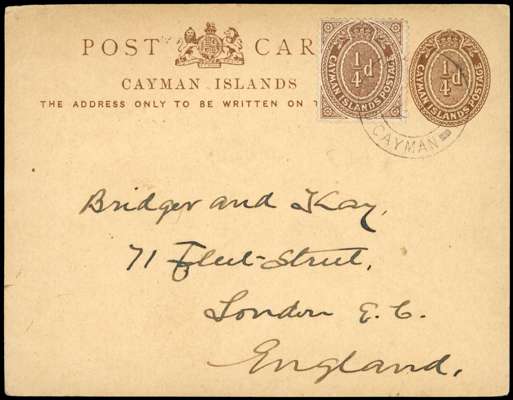 POST CAR
CAYMAN ISLANDS
THE ADDRESS ONLY TO BE WRITTEN ON T
1/4 d
CAYMAN ISLANDS POSTAGE
1/4 d
CAYMAN ISLANDS POSTAGE
CAYMAN
Bridger and Kay,
71 Fleet-Street,
London E.C.
England.